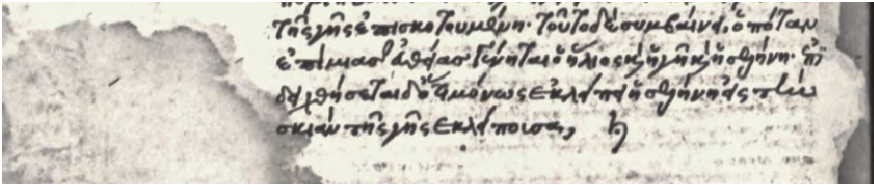 τῆς γῆς ἐπισκοτουμένη· τοῦτο δὲ συμβαίνει, ὁπόταν
ἐπὶ μιᾶς εὐθείας γένηται ὁ ἥλιος κ ἡ γῆ κ ἡ σελήνη· ἐπι
δειχθήσεται δ' ὅτι μόνως ἐκλείπει ἡ σελήνη εἰς τὴν
σκιὰν τῆς γῆς ἐκλείπουσα,